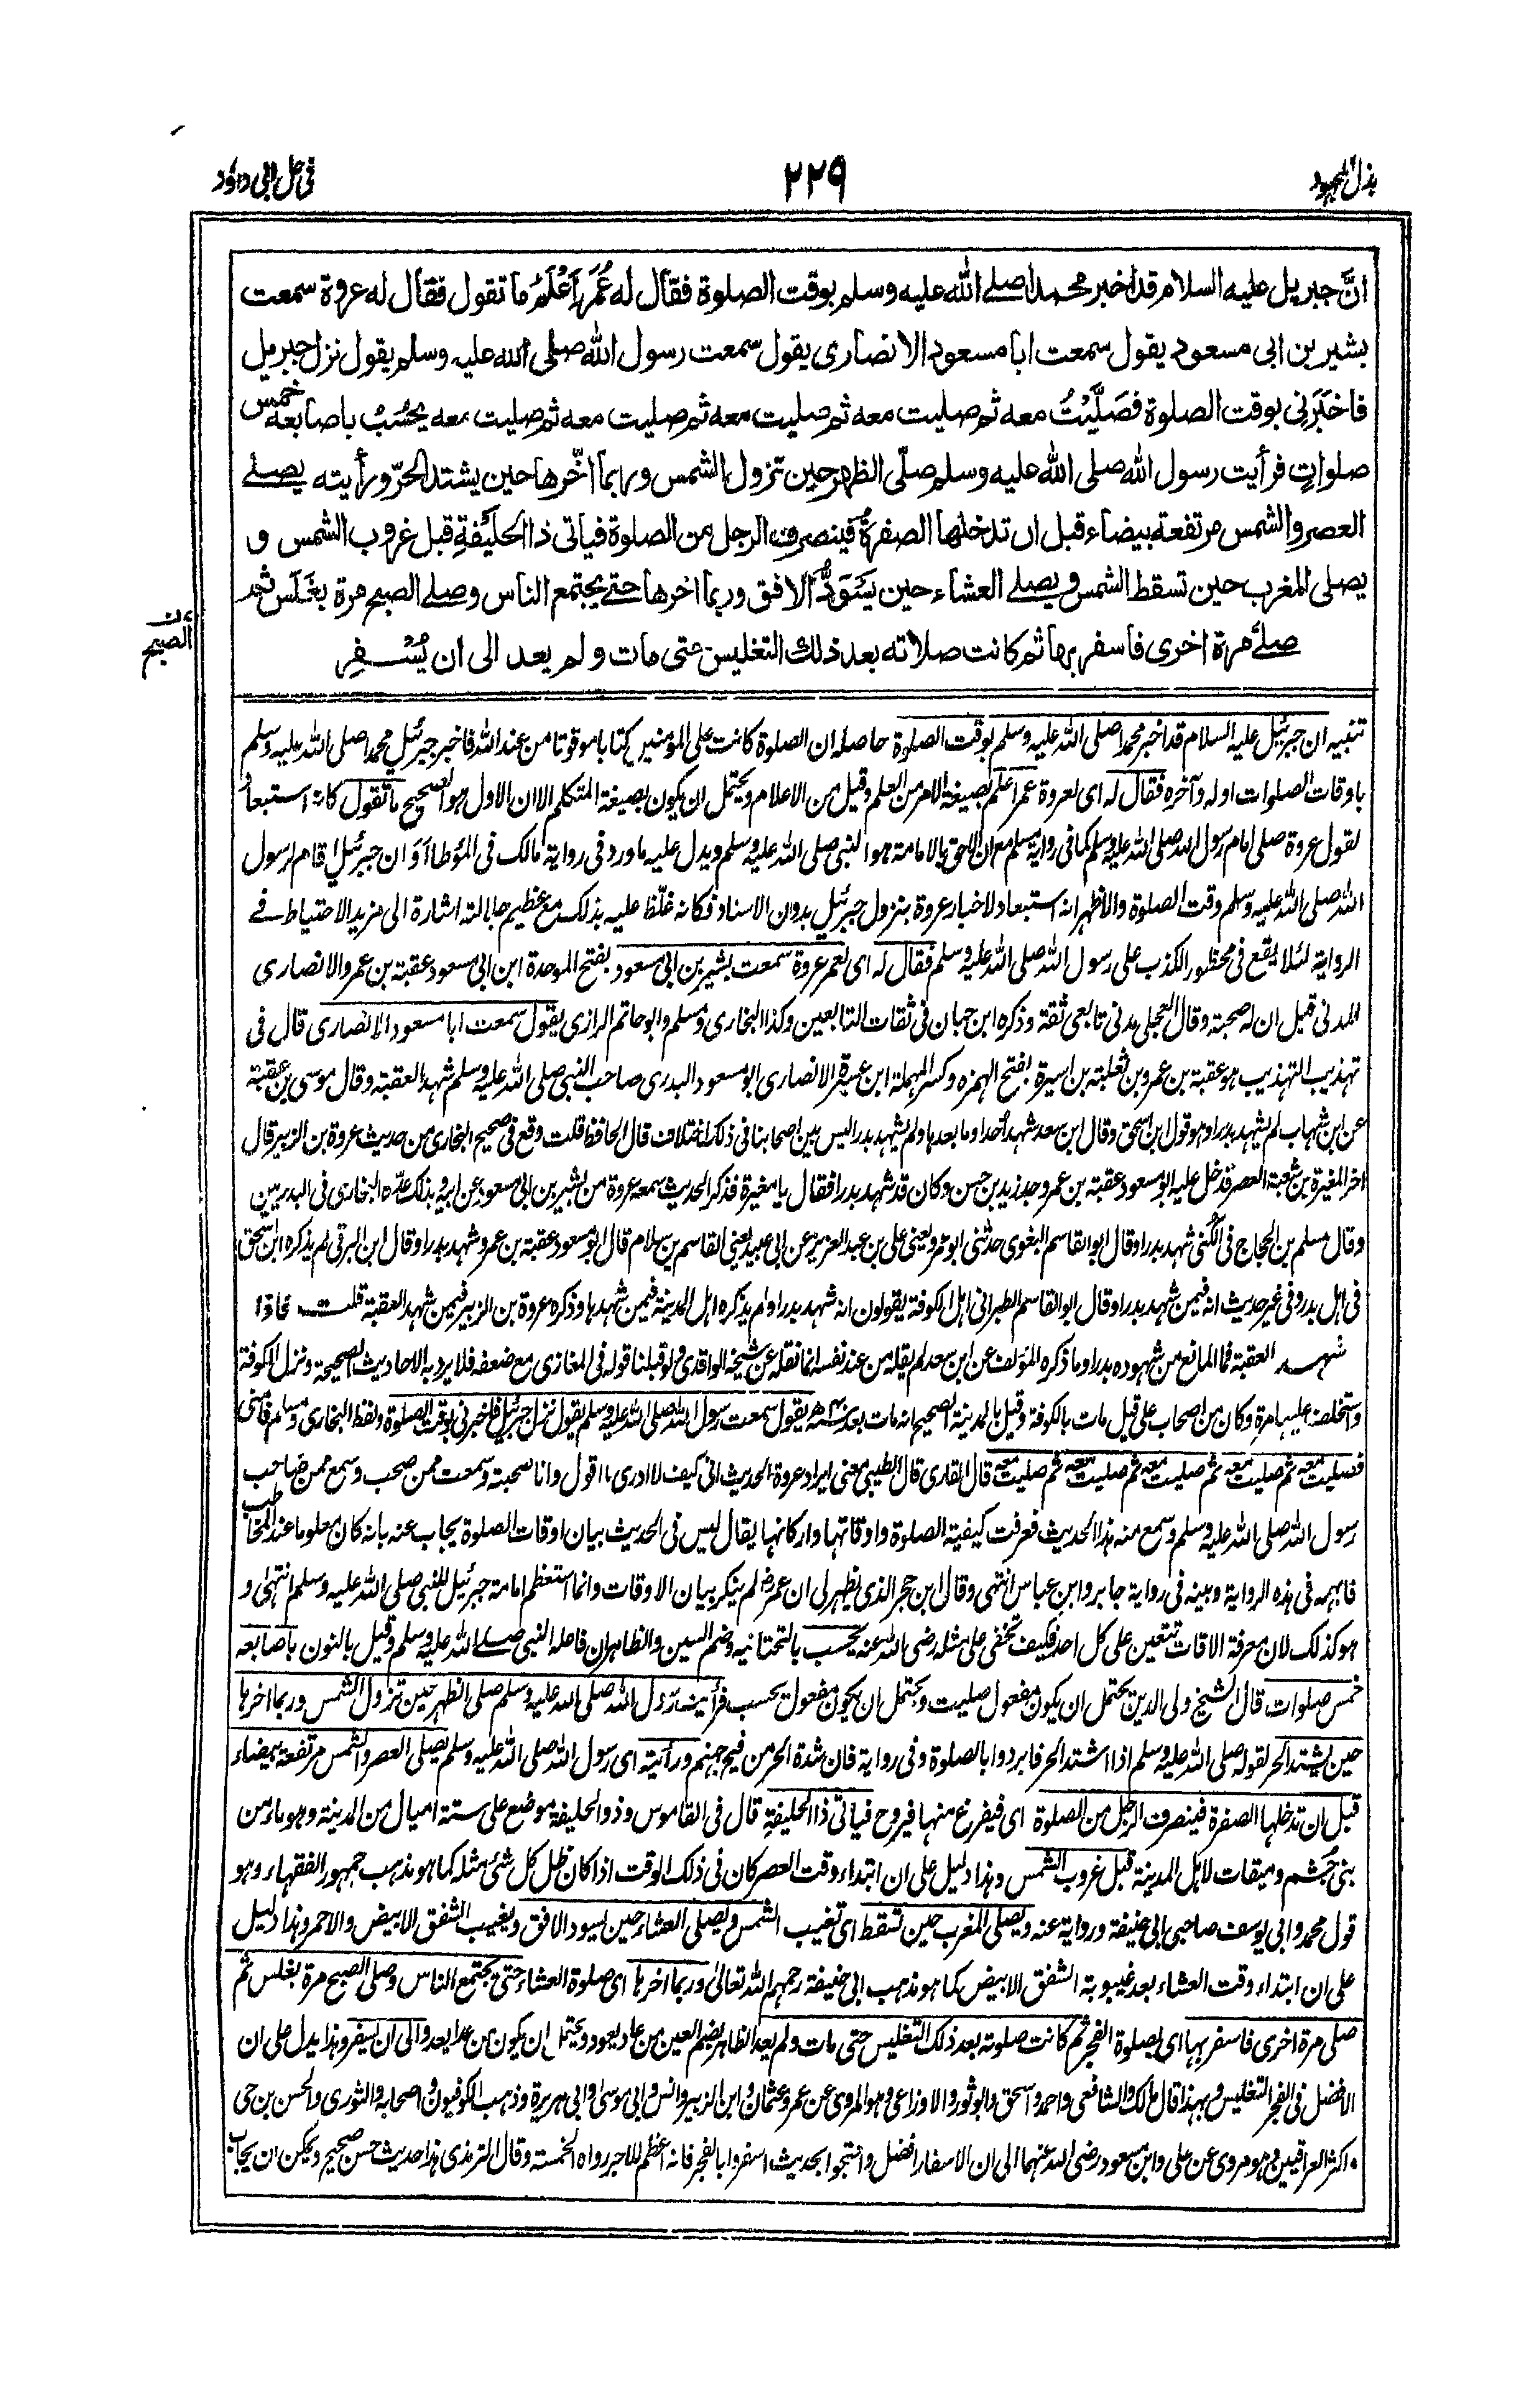 بذل المجہود
٢٢٩
فی حل ابی داؤد
انَّ جبریل علیه السلام قد اخبر محمداً صلے اللّٰه علیه وسلم بوقت الصلوة فقال له عُمَرُ اَعْلَمْ ما تقول فقال له عروة سمعت
بشیر بن ابی مسعود یقول سمعت ابا مسعود الانصاری یقول سمعت رسول اللّٰه صلی اللّٰه علیه وسلم یقول نزل جبریل
فاخبَرَنِی بوقت الصلوة فصَلَّیْتُ معه ثم صلیت معه ثم صلیت معه ثم صلیت معه ثم صلیت معه یحْسُبُ باصابعه خمس
صلواتٍ فرأیت رسول اللّٰه صلی اللّٰه علیه وسلم صلّی الظهر حین تزول الشمس وربما اخّرها حین یشتد الحرّ ورأیته یصلے
العصر والشمس مرتفعة بیضاء قبل ان تدخلها الصفرةُ فینصرف الرجل من الصلوة فیاتی ذا الحلَیْفةِ قبل غروب الشمس و
یصلی المغرب حین تسقط الشمس ویصلے العشاء حین یَسْوَدُّ الافق وربما اخرها حتے یجتمع الناس وصلے الصبح مرة بغَلَسٍ ثم
صلےٰ مرة اخری فاسفر بها ثم کانت صلاته بعد ذلك التغلیس حتی مات ولم یعد الی ان یُسْفِر
الصبح
تنبیہ ان جبرئیل علیہ السلام قد اخبر محمدا صلی اللہ علیہ وسلم بوقت الصلوۃ حاصلہ ان الصلوۃ کانت علی المؤمنین کتابا موقوتا من عند اللہ فاخبر جبرئیل محمدا صلی اللہ علیہ وسلم
باوقات الصلوات اولہ وآخرہ فقال لہ ای لعروۃ عمر اعلم بصیغۃ الامر من العلم وقیل من الاعلام ویحتمل ان یکون بصیغۃ المتکلم الا ان الاول ہو الصحیح ما تقول کانہ استبعاد
لقول عروۃ صلی امام رسول اللہ صلی اللہ علیہ وسلم کما فی روایۃ مسلم مع ان الاحق بالامامۃ ہو النبی صلی اللہ علیہ وسلم ویدل علیہ ما ورد فی روایۃ مالک فی المؤطا اَوَ ان جبرئیل اقام لرسول
اللہ صلی اللہ علیہ وسلم وقت الصلوۃ والاظہر انہ استبعاد لاخبار عروۃ بنزول جبرئیل بدون الاسناد فکانہ غلّظ علیہ بذلک مع عظیم جلالتہ اشارۃ الی مزید الاحتیاط فے
الروایۃ لئلا یقع فی محظور الکذب علی رسول اللہ صلی اللہ علیہ وسلم فقال لہ ای لعمر عروۃ سمعت بشیر بن ابی مسعود بفتح الموحدۃ ابن ابی مسعود عقبۃ بن عمرو الانصاری
المدنی قیل ان لہ صحبۃ وقال العجلی مدنی تابعی ثقۃ وذکرہ ابن حبان فی ثقات التابعین وکذا البخاری ومسلم وابو حاتم الرازی یقول سمعت ابا مسعود الانصاری قال فی
تہذیب التہذیب ہو عقبۃ بن عمرو بن ثعلبۃ بن اسیرۃ بفتح الہمزہ وکسر المہملۃ ابن عسیرۃ الانصاری ابو مسعود البدری صاحب النبی صلی اللہ علیہ وسلم شہد العقبۃ وقال موسی بن عقبۃ
عن ابن شہاب لم یشہد بدرا وہو قول ابن اسحق وقال ابن سعد شہد اُحدا وما بعدہا ولم یشہد بدرا لیس بین اصحابنا فی ذلک اختلاف قال الحافظ قلت وقع فی صحیح البخاری من حدیث عروۃ بن الزبیر قال
اخر المغیرۃ بن شعبۃ العصر فدخل علیہ ابو مسعود عقبۃ بن عمرو جد زید بن حسن وکان قد شہد بدرا فقال یا مغیرۃ فذکر الحدیث سمعہ عروۃ من بشیر بن ابی مسعود عن ابیہ وبذلک عدّہ البخاری فی البدریین
وقال مسلم بن الحجاج فی الکُنی شہد بدرا وقال ابو القاسم البغوی حدثنی ابو عمرو یعنی علی بن عبد العزیز عن ابی عبید یعنی القاسم بن سلام قال ابو مسعود عقبۃ بن عمرو شہد بدرا وقال ابن البرقی لم یذکرہ ابن اسحق
فی اہل بدر وفی غیر حدیث انہ فیمن شہد بدرا وقال ابو القاسم الطبرانی اہل الکوفۃ یقولون انہ شہد بدرا ولم یذکرہ اہل المدینۃ فیمن شہدہا وذکرہ عروۃ بن الزبیر فیمن شہد العقبۃ قلت فاذا
شہد العقبۃ فما المانع من شہودہ بدرا وما ذکرہ المؤلف عن ابن سعد لم یقلہ من عند نفسہ انما نقلہ عن شیخہ الواقدی ولو قبلنا قولہ فی المغازی مع ضعفہ فلا یرد بہ الاحادیث الصحیحۃ ونزل الکوفۃ
واستخلفہ علیہا مرۃ وکان من اصحاب علی قیل مات بالکوفۃ وقیل بالمدینۃ الصحیح انہ مات بعد یقول سمعت رسول اللہ صلی اللہ علیہ وسلم یقول نزل جبرئیل فاخبرنی بوقت الصلوۃ ولفظ البخاری ومسلم فامنی
فصلیت معہ ثم صلیت معہ ثم صلیت معہ ثم صلیت معہ ثم صلیت معہ قال القاری قال الطیبی معنی ایراد عروۃ الحدیث انی کیف لا ادری ما اقول وانا صحبت وسمعت ممن صحب وسمع ممن صاحب
رسول اللہ صلی اللہ علیہ وسلم وسمع منہ ہذا الحدیث فعرفت کیفیۃ الصلوۃ واوقاتہا وارکانہا یقال لیس فی الحدیث بیان اوقات الصلوۃ یجاب عنہ بانہ کان معلوما عند المخاطب
فابہمہ فی ہذہ الروایۃ وبینہ فی روایۃ جابر وابن عباس انتہی وقال ابن حجر الذی یظہر لی ان عمر رض لم ینکر بیان الاوقات وانما استعظم امامۃ جبرئیل للنبی صلی اللہ علیہ وسلم انتہیٰ و
ہو کذلک لان معرفۃ الاقات تتعین علی کل احد فکیف تخفی علی مثلہ رضی اللہ عنہ یحسب بالتحتانیہ وضم السین والظاہر ان فاعلہ النبی صلے اللہ علیہ وسلم وقیل بالنون باصابعہ
خمس صلوات قال الشیخ ولی الدین یحتمل ان یکون مفعول صلیت ویحتمل ان یکون مفعول یحسب فرأیت رسول اللہ صلی اللہ علیہ وسلم صلی الظہر حین تزول الشمس وربما اخرہا
حین یشتد الحر لقولہ صلی اللہ علیہ وسلم اذا اشتد الحر فابردوا بالصلوۃ وفی روایۃ فان شدۃ الحر من فیح جہنم ورأیتہ ای رسول اللہ صلی اللہ علیہ وسلم یصلی العصر والشمس مرتفعۃ بیضاء
قبل ان تدخلہا الصفرۃ فینصرف الرجل من الصلوۃ ای فیفرغ منہا فیروح فیاتی ذا الحلیفۃ قال فی القاموس وذو الحلیفۃ موضع علی ستۃ امیال من المدینۃ وہو ماء من
بنی جشم ومیقات لاہل المدینۃ قبل غروب الشمس وہذا دلیل علی ان ابتداء وقت العصر کان فی ذلک الوقت اذا کان ظل کل شئ مثلہ کما ہو مذہب جمہور الفقہاء وہو
قول محمد وابی یوسف صاحبی ابی حنیفۃ وروایۃ عنہ ویصلی المغرب حین تسقط ای تغیب الشمس ویصلی العشاء حین یسود الافق ویغیب الشفق الابیض والاحمر وہذا دلیل
علی ان ابتداء وقت العشاء بعد غیبوبۃ الشفق الابیض کما ہو مذہب ابی حنیفۃ رحمہم اللہ تعالیٰ وربما اخرہا ای صلوۃ العشاء حتی یجتمع الناس وصلی الصبح مرۃ بغلس ثم
صلی مرۃ اخری فاسفر بہا ای بصلوۃ الفجر ثم کانت صلوتہ بعد ذلک التغلیس حتی مات ولم یعد الظاہر بضم العین من عاد یعود ویحتمل ان یکون من عدا یعدو الی ان یسفر وہذا یدل علی ان
الافضل فی الفجر التغلیس وبہذا قال مالک والشافعی واحمد واسحق وابو ثور والاوزاعی وہو المروی عن عمر وعثمان وابن الزبیر وانس وابی موسیٰ وابی ہریرۃ وذہب الکوفیون واصحابہ والثوری والحسن بن حی
واکثر العراقیین وہو مروی عن علی وابن مسعود رضی اللہ عنہما الی ان الاسفار افضل واحتجوا بحدیث اسفروا بالفجر فانہ اعظم للاجر رواہ الخمسۃ وقال الترمذی ہذا حدیث حسن صحیح ویمکن ان یجاب